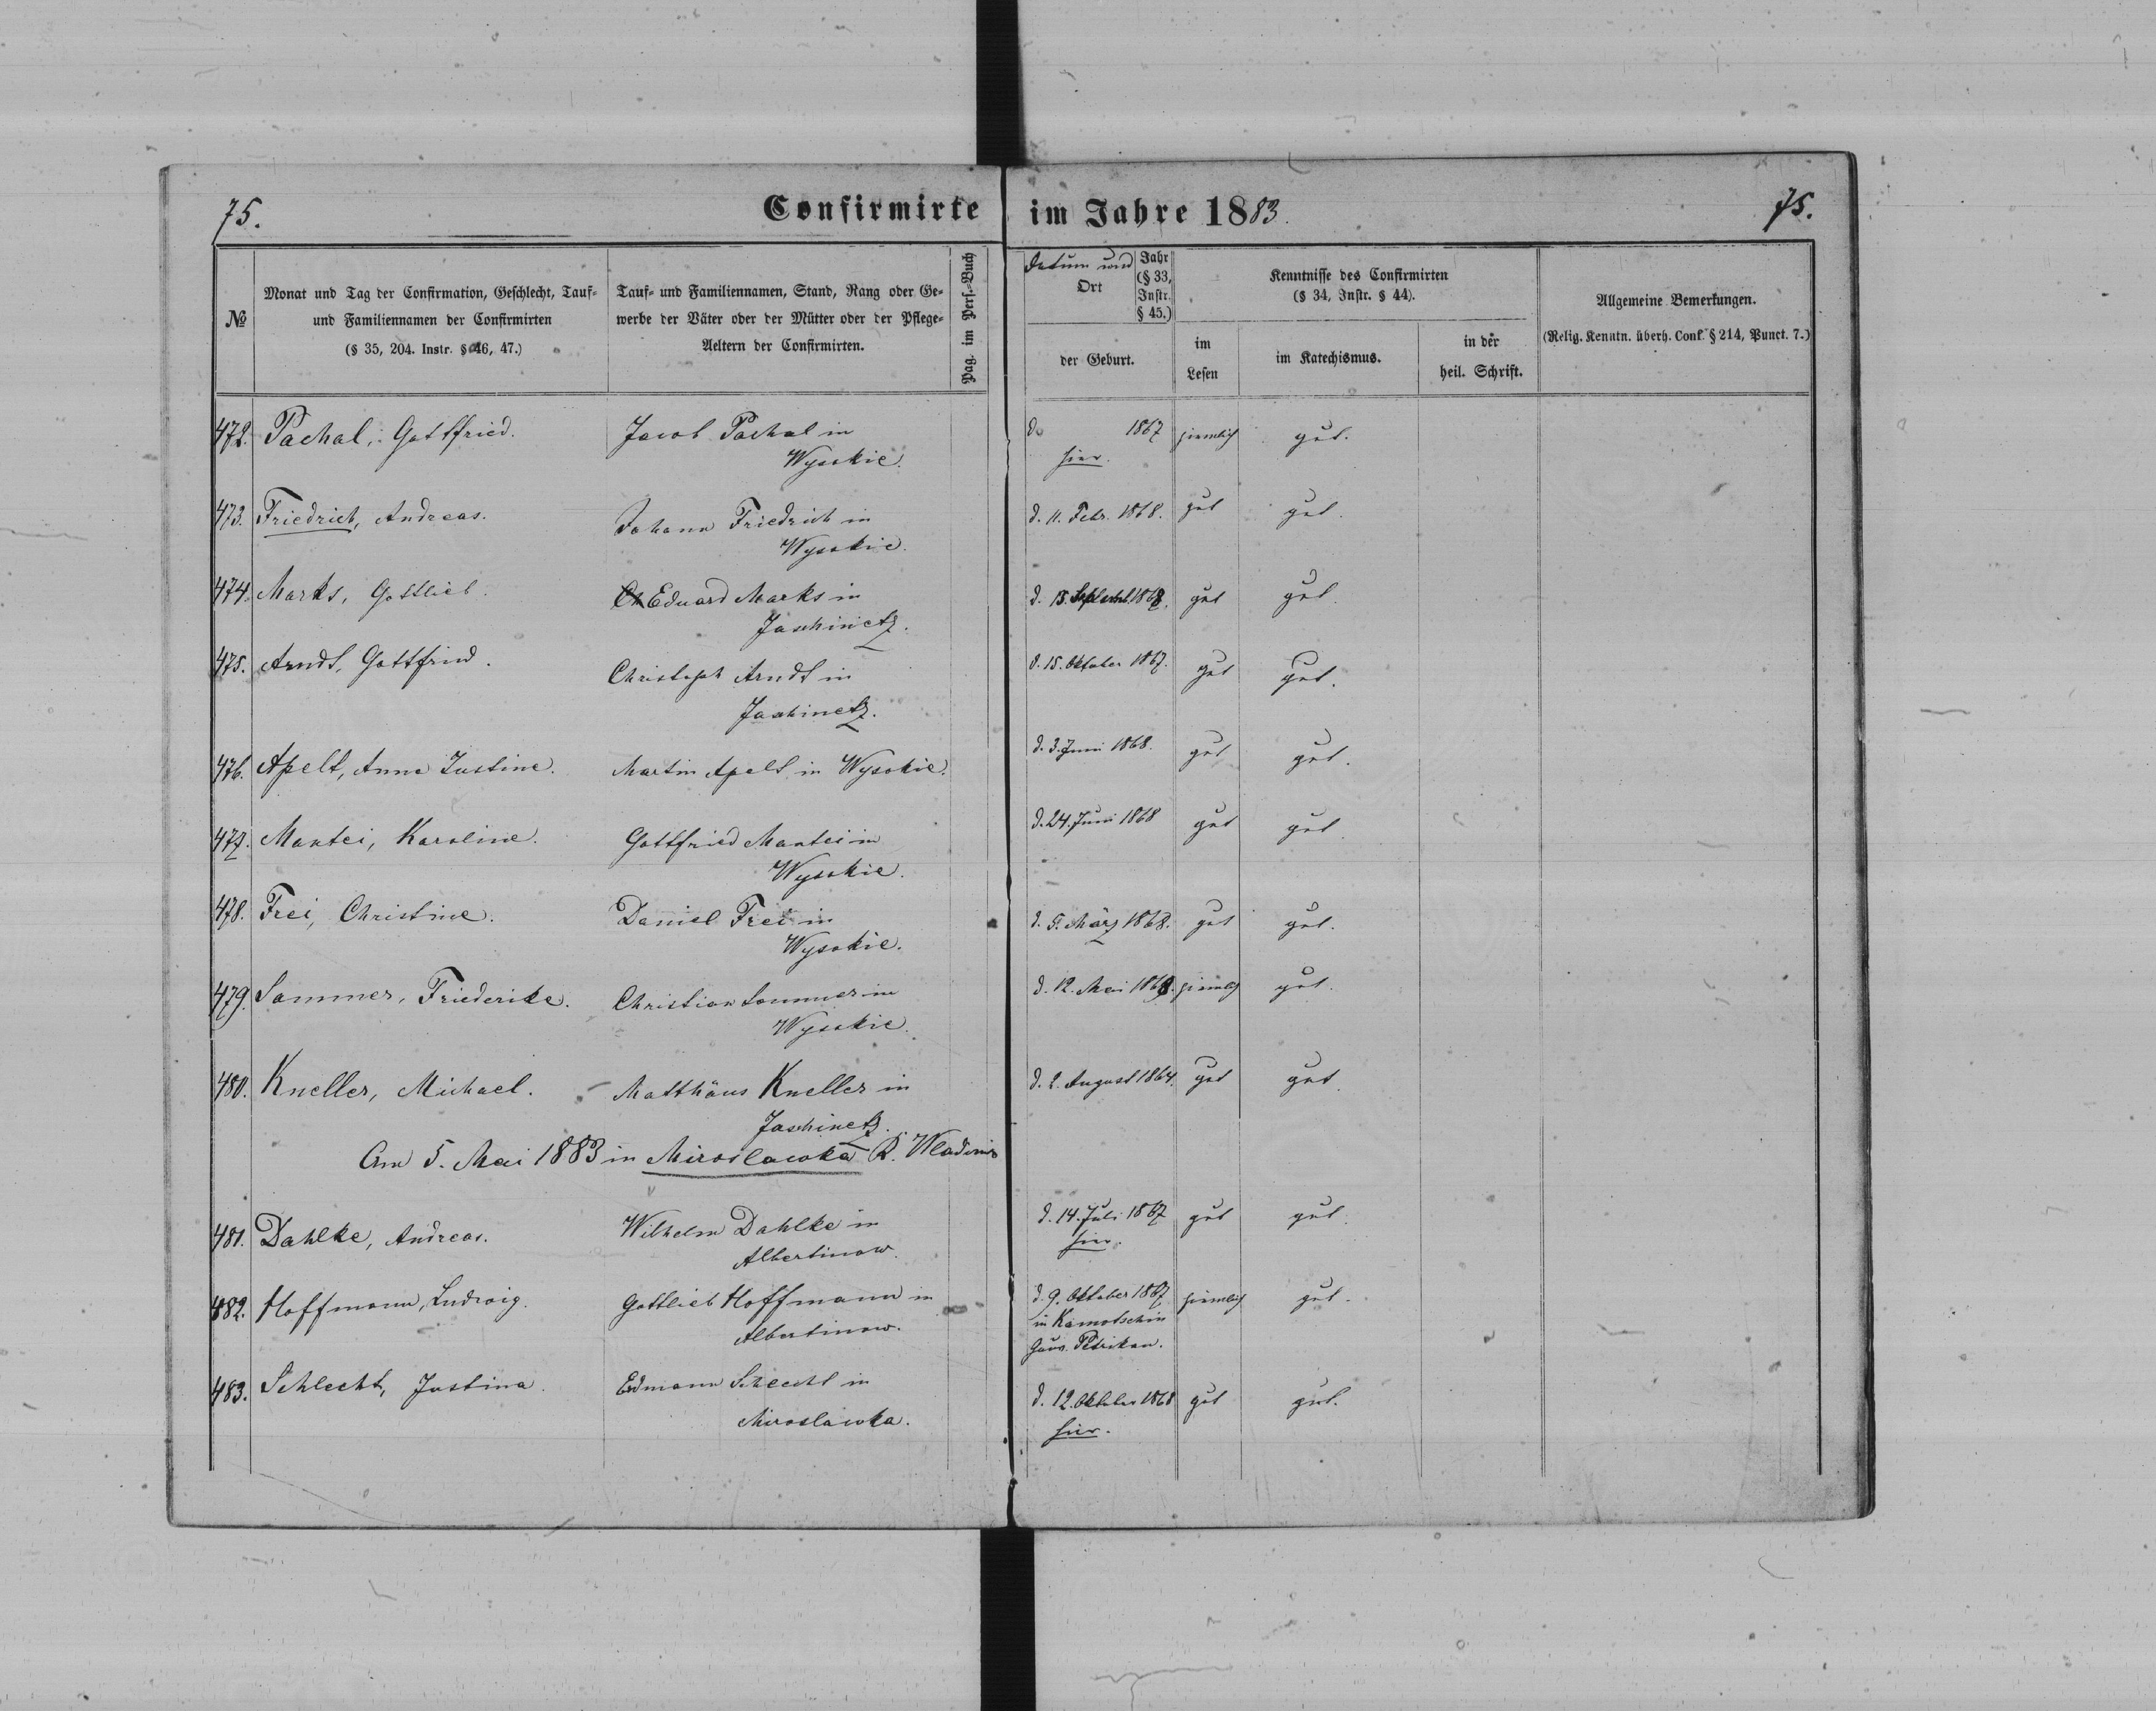 75.
Confirmirte im Jahre 1883.
75.
№
Monat und Tag der Confirmation, Geschlecht, Tauf-
und Familiennamen der Confirmirten
(§ 35, 204. Instr. § 46, 47.)
Tauf- und Familiennamen, Stand, Rang oder Ge-
werbe der Väter oder der Mütter oder der Pflege-
Aeltern der Confirmirten.
Pag. im Pers.-Buch
Datum und
Ort
Jahr
(§ 33,
Instr.
§ 45.)
der Geburt.
Kenntnisse des Confirmirten
(§ 34, Instr. § 44).
im
Lesen
im Katechismus.
in der
heil. Schrift.
Allgemeine Bemerkungen.
(Relig. Kenntn. überh. Conf. § 214, Punct. 7.)
472. Pachal, Gottfried. Jacob Pachal in d. 1867 ziemlich gut.
Wysokie. hier.
473. Friedrich, Andreas. Johann Friedrich in d. 11. Febr. 1868. gut gut.
Wysokie.
474. Marks, Gottlieb. Eduard Marks in d. 15. 1868. gut gut.
Jaschinetz.
475. Arndt, Gottfried. Christoph Arndt in d. 15. Oktober 1867. gut gut.
Jaschinetz.
476. Apelt, Anna Justine. Martin Apelt in Wysokie. d. 3. Juni 1868. gut gut.
477. Mantei, Karoline. Gottfried Mantei in d. 24. Juni 1868 gut gut.
Wysokie.
478. Frei, Christine. Daniel Frei in d. 5. März 1868. gut gut.
Wysokie.
479. Sommer, Friederike. Christian Sommer in d. 12. Mai 1868. ziemlich gut.
Wysokie.
480. Kneller, Michael. Matthäus Kneller in d. 2. August 1864. gut gut.
Jaschinetz.
Am 5. Mai 1883 in Miroslawka K. Wladimir
481. Dahlke, Andreas. Wilhelm Dahlke in d. 14. Juli 1867 gut gut.
Albertinow. hier.
482. Hoffmann, Ludwig. Gottlieb Hoffmann in d. 9. Oktober 1867 ziemlich gut.
Albertinow. in Kamotschin
Gouv. Petrikau.
483. Schlecht, Justina. Edmann Schlecht in d. 12. Oktober 1868 gut gut.
Miroslawka. hier.